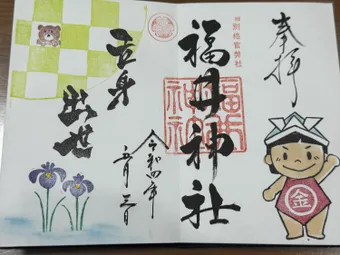 奉拝
別格官幣社
福井神社
福井
神社
立身
出世
令和四年
五月三日
金